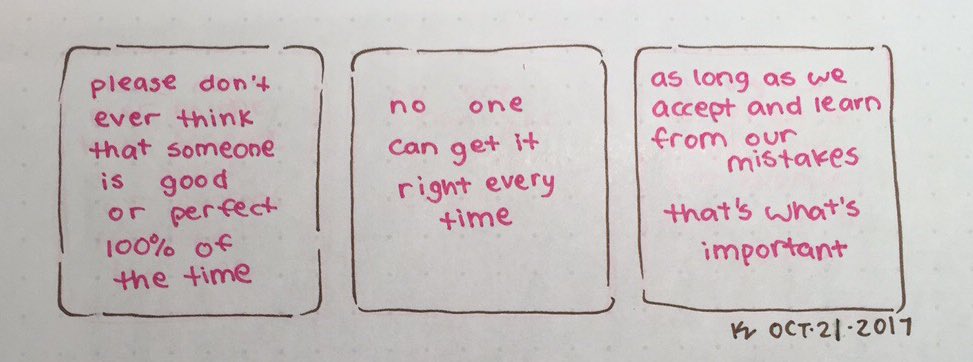 please don't
ever think
that someone
is good
or perfect
100% of
the time
no one
can get it
right every
time
as long as we
accept and learn
from our
mistakes
that's what's
important
OCT·21·2017